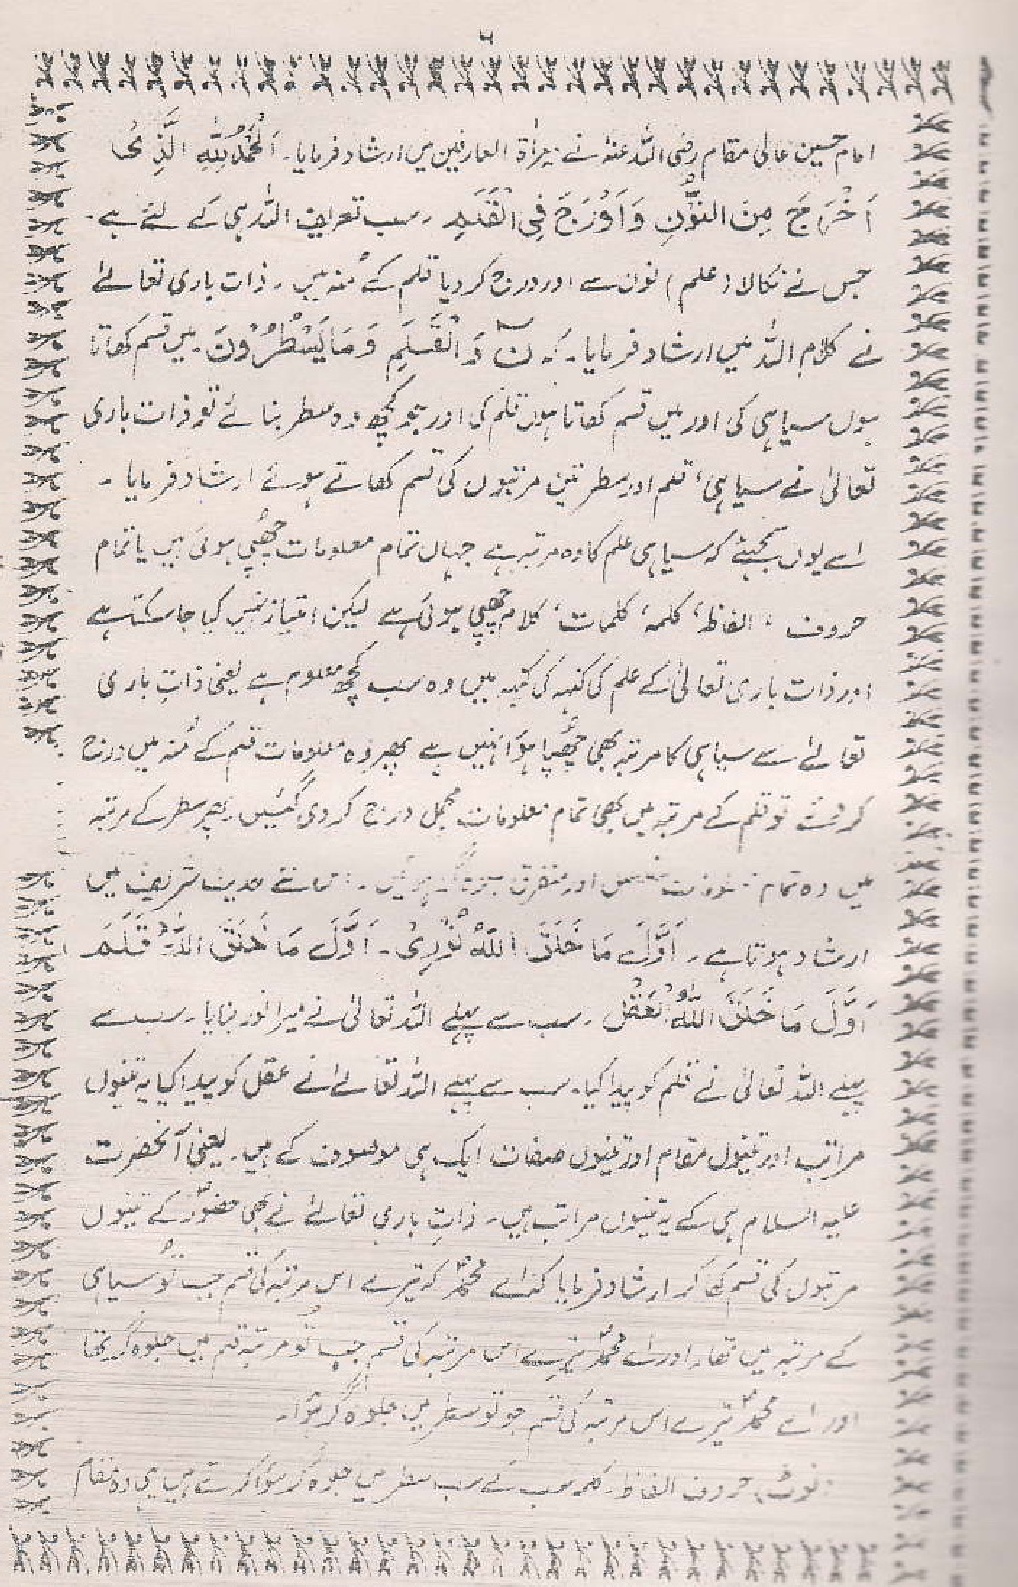 ۶
امام حسین عالی مقام رضی اللہ عنہٗ نے مِرأۃ العارفین میں ارشاد فرمایا۔ اَلْحَمْدُ لِلّٰہِ الَّذِیْ
اَخْرَجَ مِنَ النُّوْنِ وَاَوْرَجَ فِی الْقَلَمِ ۔ سب تعریف اللہ ہی کے لئے ہے۔
جس نے نکالا (علم) نون سے اور درج کر دیا قلم کے مُنہ میں ۔ ذات باری تعالےٰ
نے کلام اللہ میں ارشاد فرمایا۔ کہ نٓ وَ الْقَلَمِ وَمَا یَسْطُرُوْنَ ۔ میں قسم کھاتا
ہوں سیاہی کی اور میں قسم کھاتا ہوں قلم کی اور جو کچھ وہ سطر بنائے تو ذات باری
تعالیٰ نے سیاہی، قلم اور سطر تین مرتبوں کی قسم کھاتے ہوئے ارشاد فرمایا ۔
اسے یوں سمجھئے کہ سیاہی علم کا وہ مرتبہ ہے جہاں تمام معلومات چھُپی ہوئی ہیں یا تمام
حروف ، الفاظ، کلمہ، کلمات، کلام چھپی ہوئی ہے لیکن امتیاز نہیں کیا جا سکتا ہے
اور ذات باری تعالیٰ کے علم کی کنہہ کی کنہہ میں وہ سب کچھ معلوم ہے یعنی ذاتِ باری
تعالےٰ سے سیاہی کا مرتبہ بھی چھُپا ہوا نہیں ہے پھر وہ معلومات قلم کے مُنہ میں درج
کر تو قلم کے مرتبہ میں بھی تمام معلومات مجمل درج کر دی گئیں پھر سطر کے مرتبہ
میں وہ تمام اور متفرق حدیث شریف میں
ارشاد ہوتا ہے ۔ اَوَّلَ مَا خَلَقَ اللّٰہُ نُوْرِیْ ۔ اَوَّلَ مَا خَلَقَ اللّٰہُ قَلَمَ
اَوَّلَ مَا خَلَقَ اللّٰہُ الْعَقْلَ ۔ سب سے پہلے اللہ تعالیٰ نے میرا نور بنایا۔ سب سے
پہلے اللہ تعالیٰ نے قلم کو پیدا کیا۔ سب سے پہلے اللہ تعالےٰ نے عقل کو پیدا کیا یہ تینوں
مراتب اور تینوں مقام اور تینوں صفات ایک ہی موصوف کے ہیں ۔ یعنی آنحضرت
علیہ السلام ہی کے یہ تینوں مراتب ہیں ۔ ذاتِ باری تعالےٰ نے بھی حضورؐ کے تینوں
مرتبوں کی قسم کھا کر ارشاد فرمایا کہ اے محمدؐ کہ تیرے اس مرتبہ کی قسم جب تُو سیاہی
کے مرتبہ میں تھا۔ اور اے محمدؐ تیرے اس مرتبہ کی قسم جب تُو مرتبہ قلم میں جلوہ گر تھا
اور اے محمدؐ تیرے اس مرتبہ کی قسم جو تو سطر میں جلوہ گر ہوا۔
نوٹ: حروف الفاظ کلمہ سب کے سب سطر میں جلوہ گر ہوا کرتے ہیں یہی وہ مقام